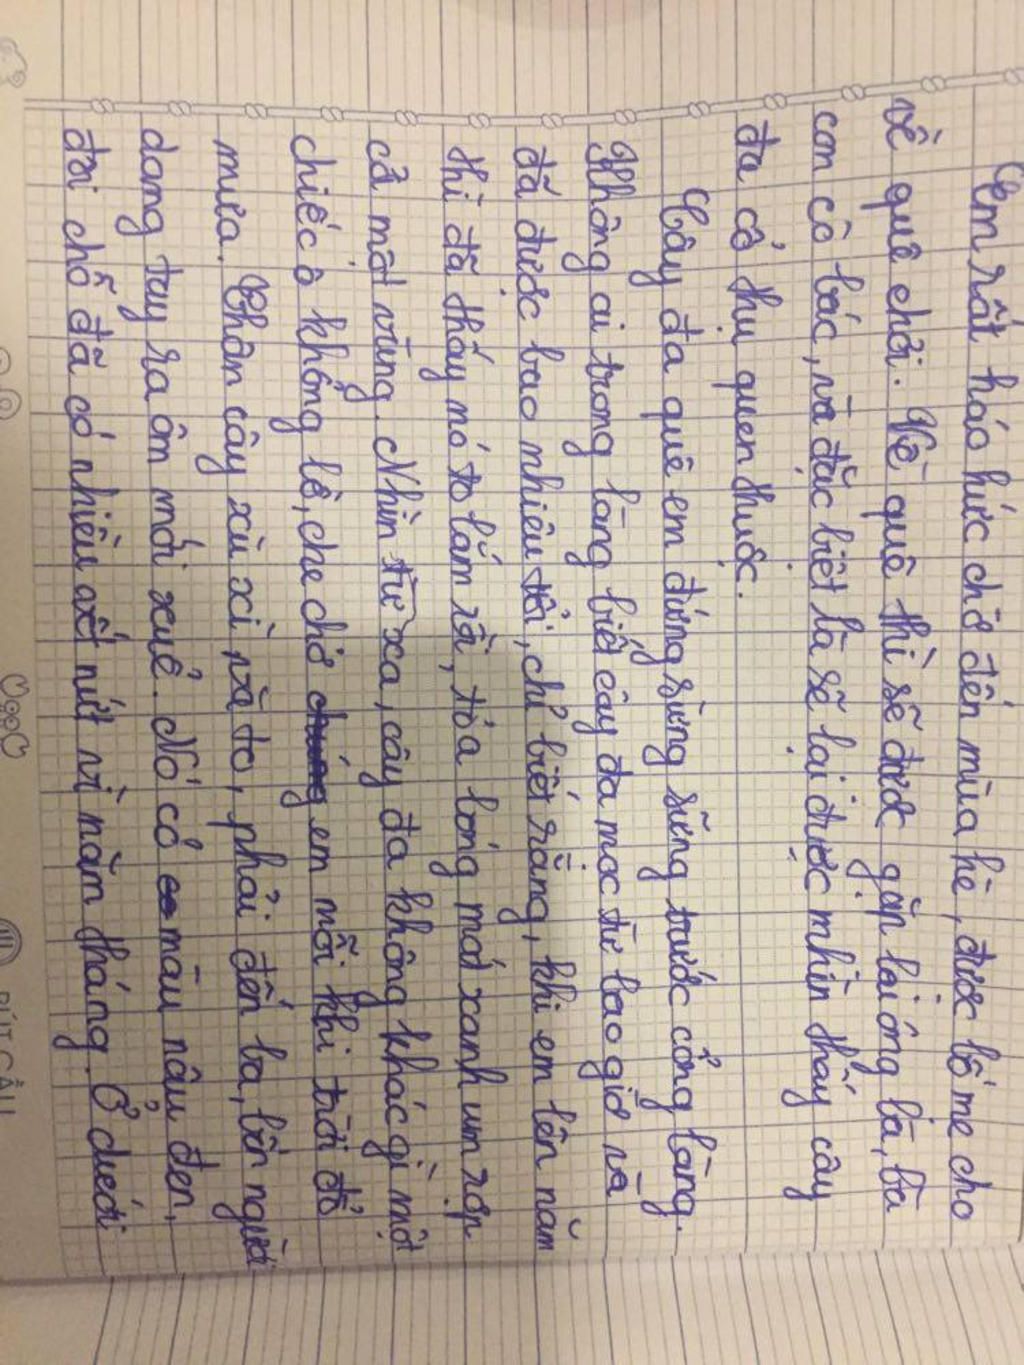 Em rất háo hức chờ đến mùa hè, được bố mẹ cho
về quê chơi. Về quê thì sẽ được gặp lại ông bà, bà
con cô bác, và đặc biệt là sẽ lại được nhìn thấy cây
đa cổ thụ quen thuộc.
Cây đa quê em đứng sừng sững trước cổng làng.
Không ai trong làng biết cây đa mọc từ bao giờ và
đã được bao nhiêu tuổi, chỉ biết rằng, khi em lên năm
thì đã thấy nó to lắm rồi, tỏa bóng mát xanh um rợp
cả một vùng. Nhìn từ xa, cây đa không khác gì một
chiếc ô khổng lồ, che chở em mỗi khi trời đổ
mưa. Thân cây xù xì và to, phải đến ba, bốn người
dang tay ra ôm mới xuể. Nó có màu nâu đen,
đôi chỗ đã có nhiều vết nứt vì năm tháng. Ở dưới
BÚT CẦU